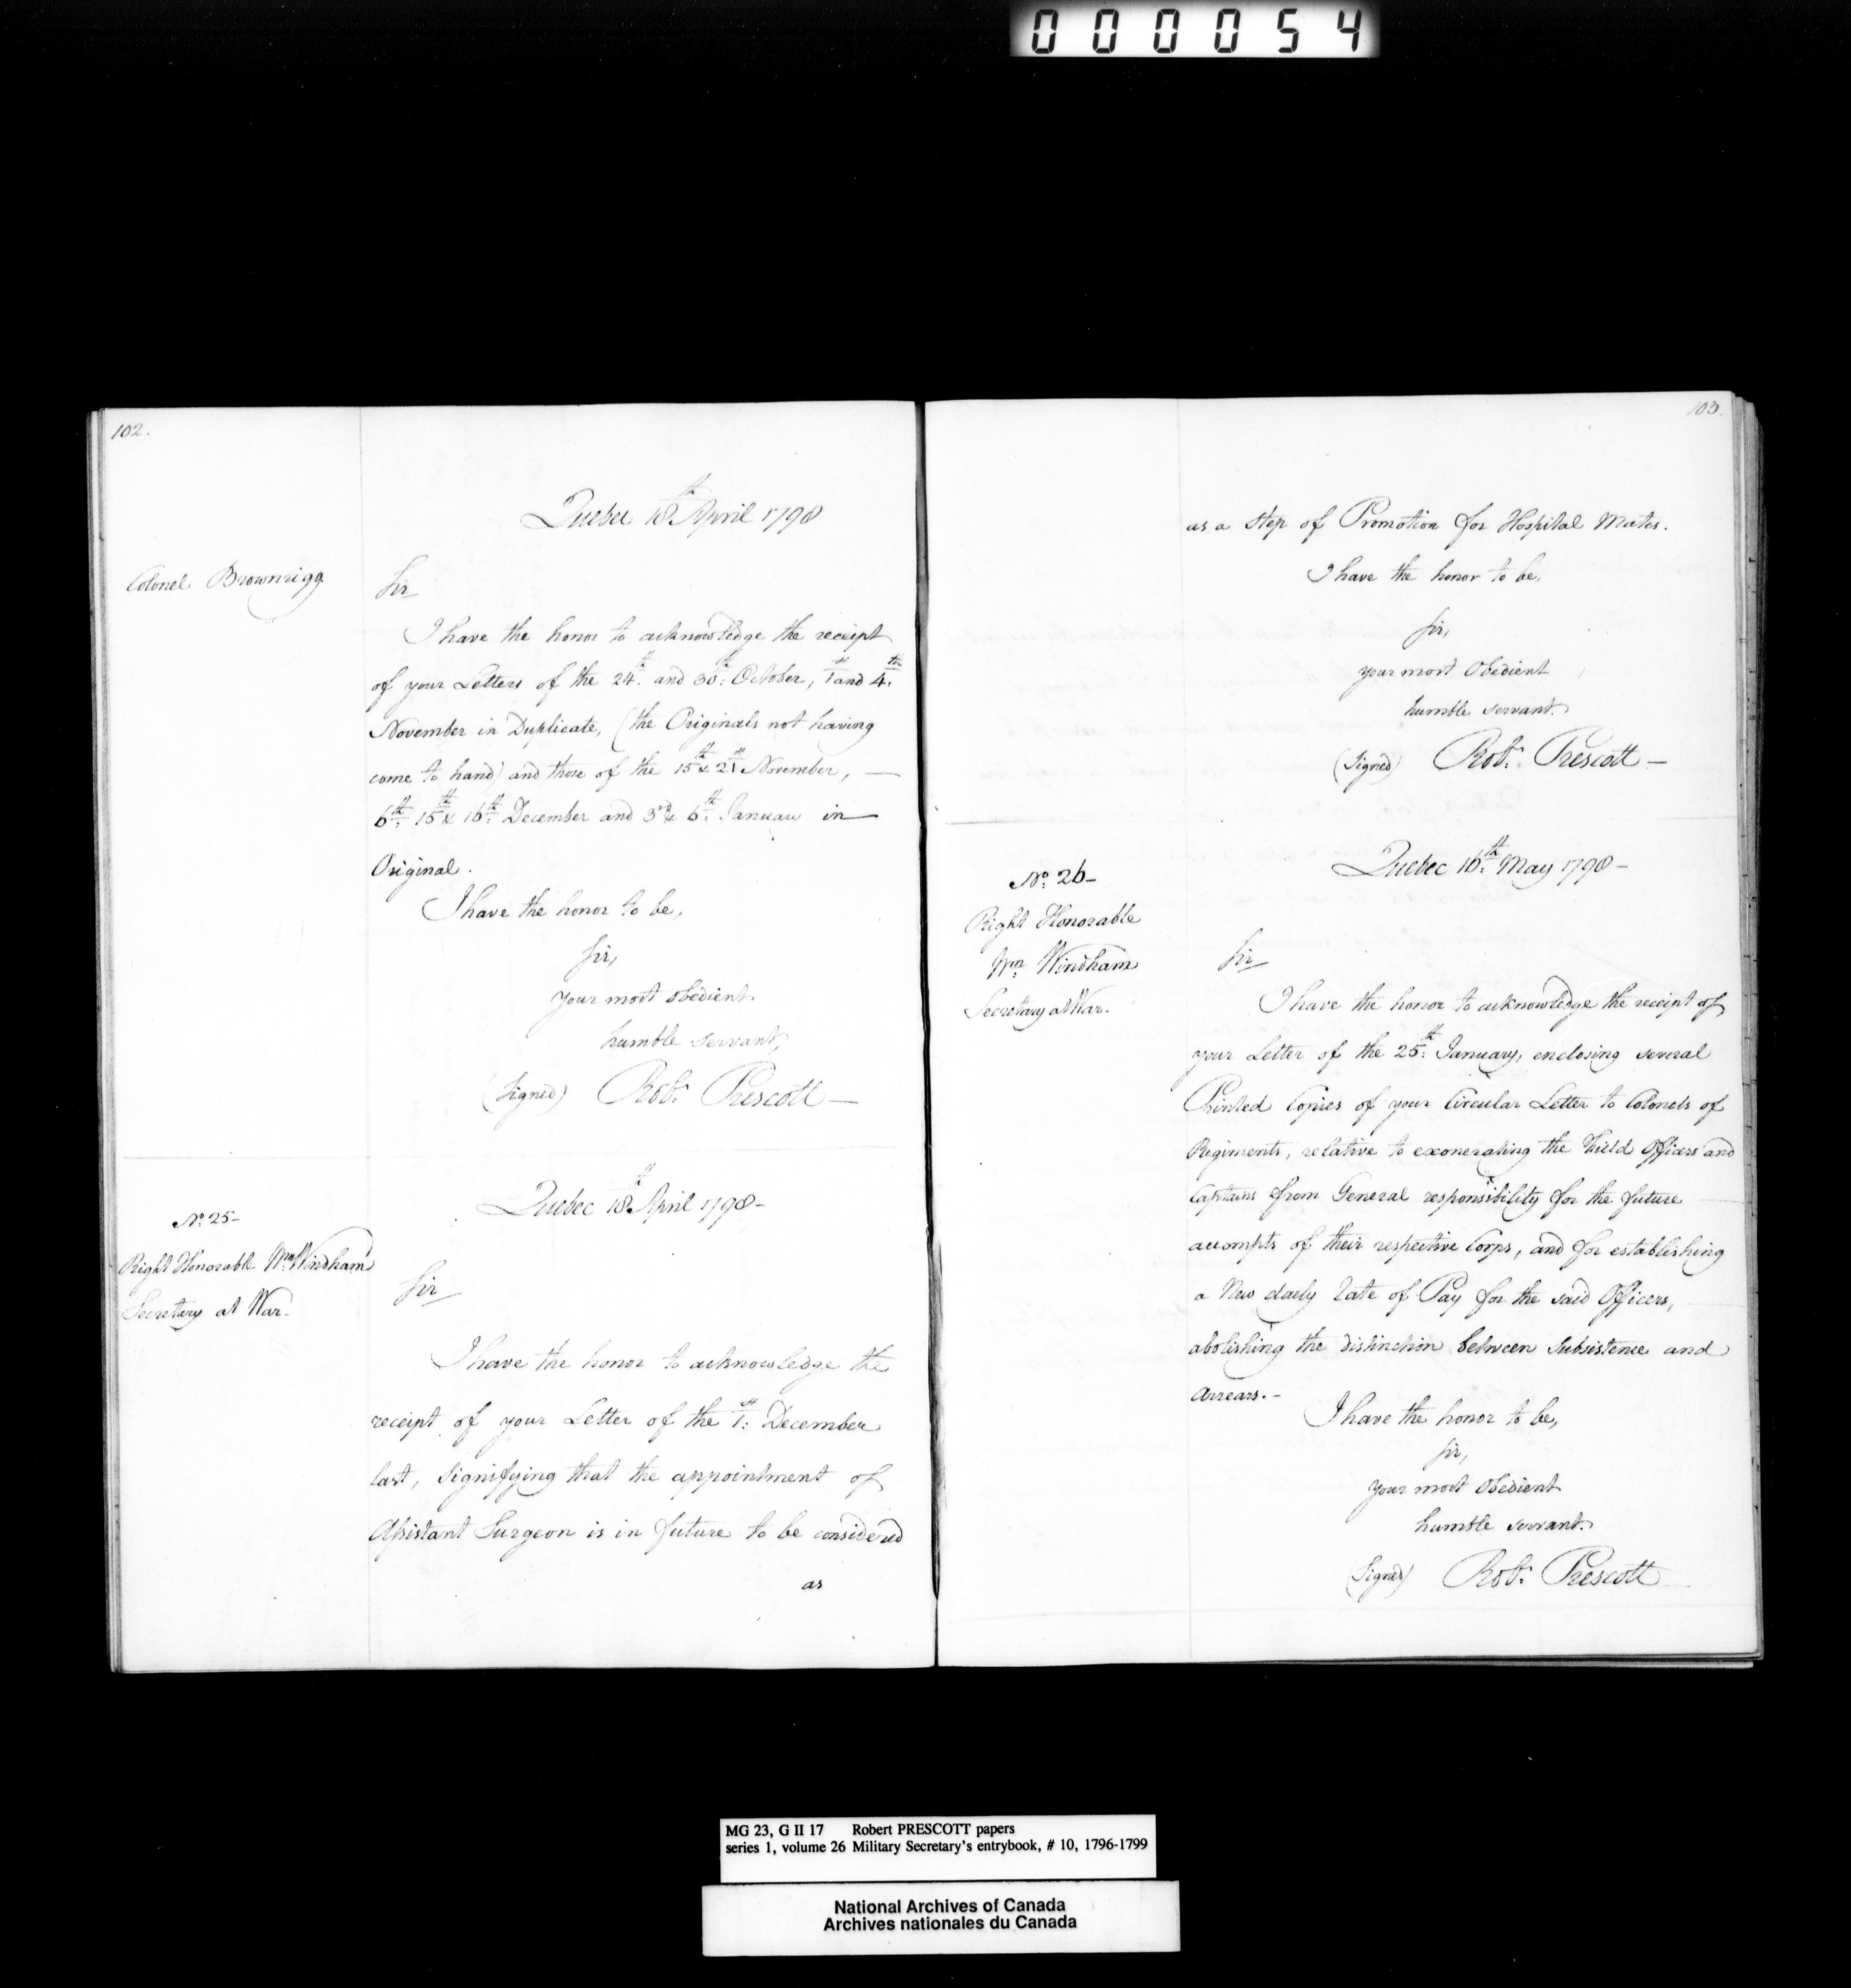 000054
102.
Quebec 18th April 1798
Colonel Brownrigg
Sir
I have the honor to acknowledge the receipt
of your Letters of the 24th and 30th: October, 1st and 4th:
November in Duplicate, (the Originals not having
come to hand) and those of the 15th & 21st November, —
6th: 15th & 16th: December and 3rd & 6th: January in —
Original.
I have the honor to be,
Sir,
your most obedient
humble servant,
(Signed) Robt: Prescott —
Quebec 18th April 1798 –
No: 25 –
Right Honorable Wm: Windham
Secretary at War.
Sir
I have the honor to acknowledge the
receipt of your Letter of the 1st: December
last, signifying that the appointment of
Assistant Surgeon is in future to be considered
as
103.
as a step of Promotion for Hospital Mates.
I have the honor to be,
Sir,
your most Obedient
humble servant.
(Signed) Robt: Prescott —
Quebec 16th: May 1798 –
No: 26 –
Right Honorable
Wm: Windham
Secretary at War.
Sir
I have the honor to acknowledge the receipt of
your Letter of the 25th: January, enclosing several
Printed Copies of your Circular Letter to Colonels of
Regiments, relative to exonerating the Field Officers and
Captains from General responsibility for the future
accompts of their respective Corps, and for establishing
a New daily rate of Pay for the said Officers,
abolishing the distinction between Subsistence and
Arrears. –
I have the honor to be,
Sir,
your most Obedient
humble servant.
(Signed) Robt: Prescott
MG 23, G II 17 Robert PRESCOTT papers
series 1, volume 26 Military Secretary's entrybook, # 10, 1796-1799
National Archives of Canada
Archives nationales du Canada